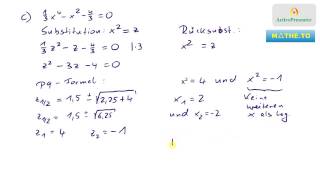 c) 1/3 x⁴ - x² - 4/3 = 0
Substitution: x² = z
1/3 z² - z - 4/3 = 0 | · 3
z² - 3z - 4 = 0
pq-Formel:
z1/2 = 1,5 ± √(2,25 + 4)
z1/2 = 1,5 ± √6,25
z1 = 4 z2 = -1
Rücksubst.:
x² = z
x² = 4 und x² = -1
x1 = 2
und x2 = -2
keine
weiteren
x als Lsg.
AktivPresenter
MATHE.TO